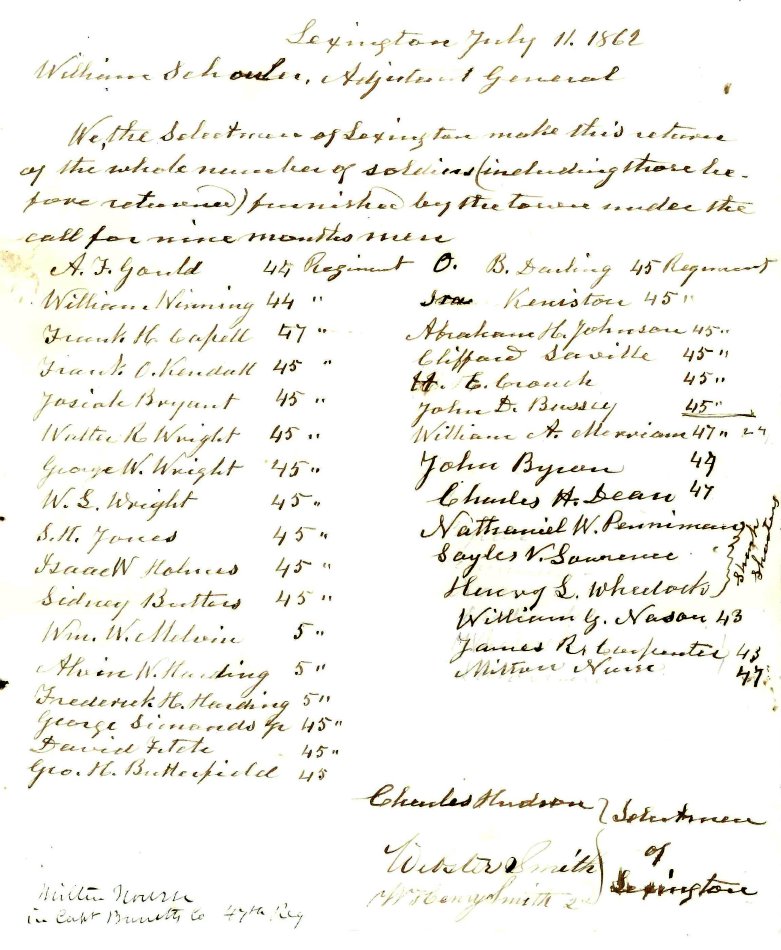 Lexington July 11. 1862
William Schouler, Adjutant General
We, the Selectmen of Lexington make this return
of the whole number of soldiers (including those be-
fore returned) furnished by the town under the
call for nine months men
A. F. Gould 44 Regiment
William Hinning 44 "
Frank H. Capell 47 "
Frank O. Kendall 45 "
Josiah Bryant 45 "
Walter R Wright 45 "
George W. Wright 45 "
W. L. Wright 45 "
S. H. Jones 45 "
Isaac W Holmes 45 "
Sidney Butters 45 "
Wm. W. Melvin 5 "
Alvin W. Harding 5 "
Frederick H. Harding 5 "
George Simonds Jr 45 "
David Fitch 45 "
Geo. H. Butterfield 45
O. B. Darling 45 Regiment
Ira Keniston 45 "
Abraham H. Johnson 45 "
Clifford Saville 45 "
H. E. Crouch 45 "
John D. Bussey 45 "
William A. Merriam 47 "
John Byron 47
Charles H. Dean 47
Nathaniel W. Penniman
Sayles V. Lawrence
Henry L. Wheelock
Sharp Shooters
William G. Nason 43
James R. Carpenter 43
Milton Nurse 47
Charles Hudson
Webster Smith
W Henry Smith 2d
Selectmen
of
Lexington
Milton Nourse
in Capt Burretts Co 47th Reg